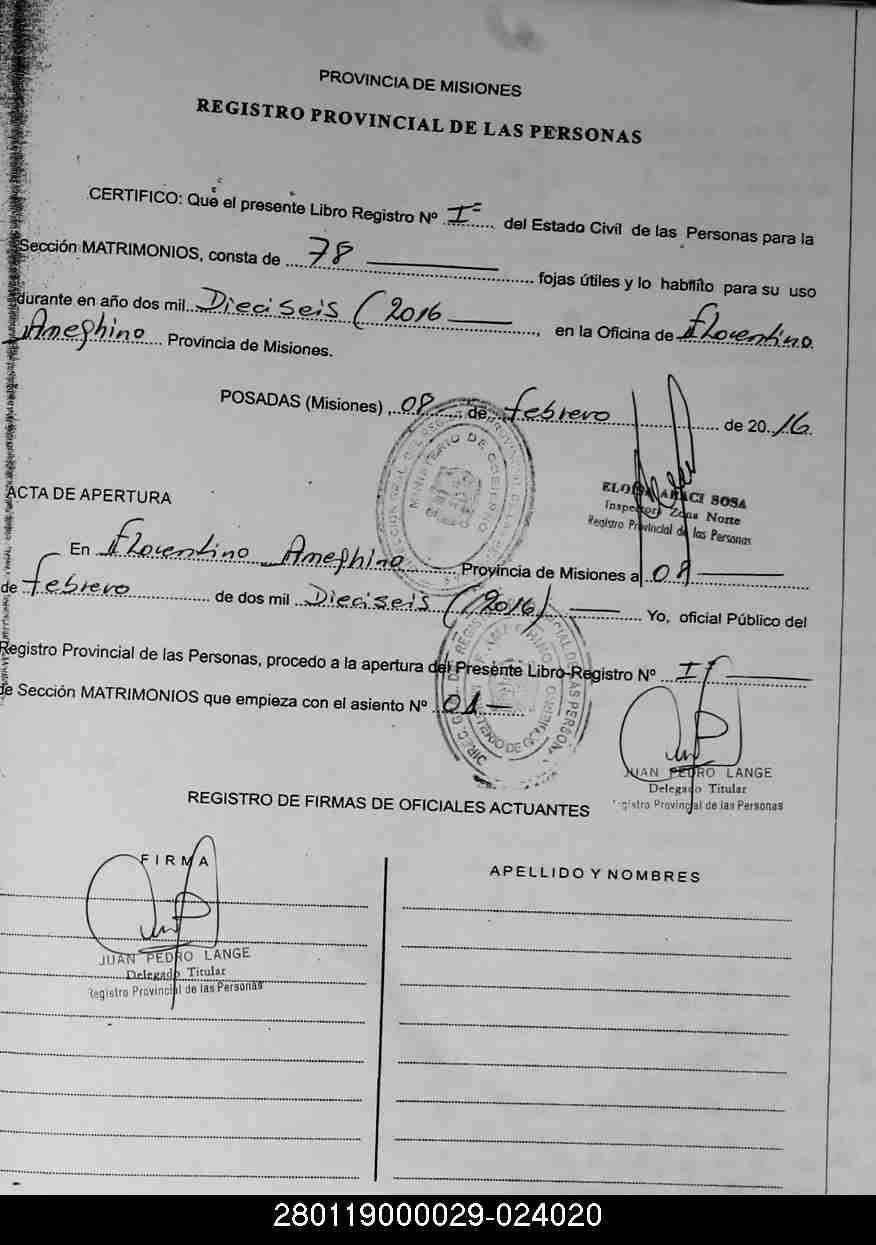 PROVINCIA DE MISIONES
REGISTRO PROVINCIAL DE LAS PERSONAS
CERTIFICO: Que el presente Libro Registro Nº I= del Estado Civil de las Personas para la
Sección MATRIMONIOS, consta de 78 fojas útiles y lo habilito para su uso
durante en año dos mil Dieciseis (2016 , en la Oficina de Florentino
Ameghino Provincia de Misiones.
POSADAS (Misiones) , 08 de febrero de 20 16
ELOISA ARACI SOSA
Inspectora Zona Norte
Registro Provincial de las Personas
ACTA DE APERTURA
En Florentino Ameghino Provincia de Misiones a 08
de febrero de dos mil Dieciseis (2016) Yo, oficial Público del
Registro Provincial de las Personas, procedo a la apertura del Presente Libro-Registro Nº I
de Sección MATRIMONIOS que empieza con el asiento Nº 01
MINISTERIO DE GOBIERNO
JUAN PEDRO LANGE
Delegado Titular
Registro Provincial de las Personas
REGISTRO DE FIRMAS DE OFICIALES ACTUANTES
FIRMA
APELLIDO Y NOMBRES
JUAN PEDRO LANGE
Delegado Titular
Registro Provincial de las Personas
280119000029-024020